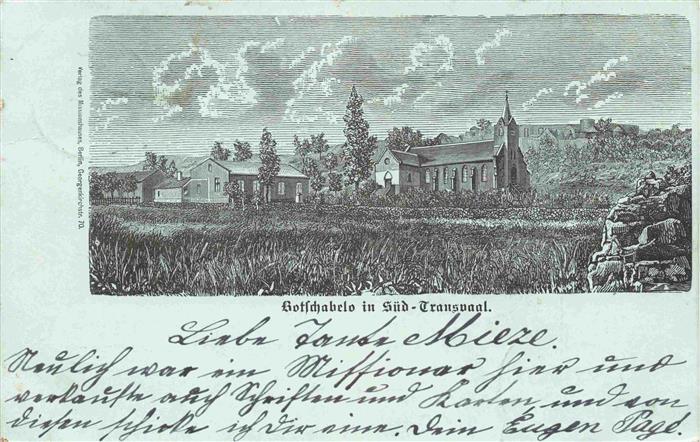 Verlag des Missionshauses, Berlin, Georgenkirchstr. 70.
Botschabelo in Süd-Transvaal.
Liebe Tante Mieze.
Neulich war ein Missionar hier und
verkaufte auch Schriften und Karten und von
diesen schicke ich dir eine. Dein Eugen Page.